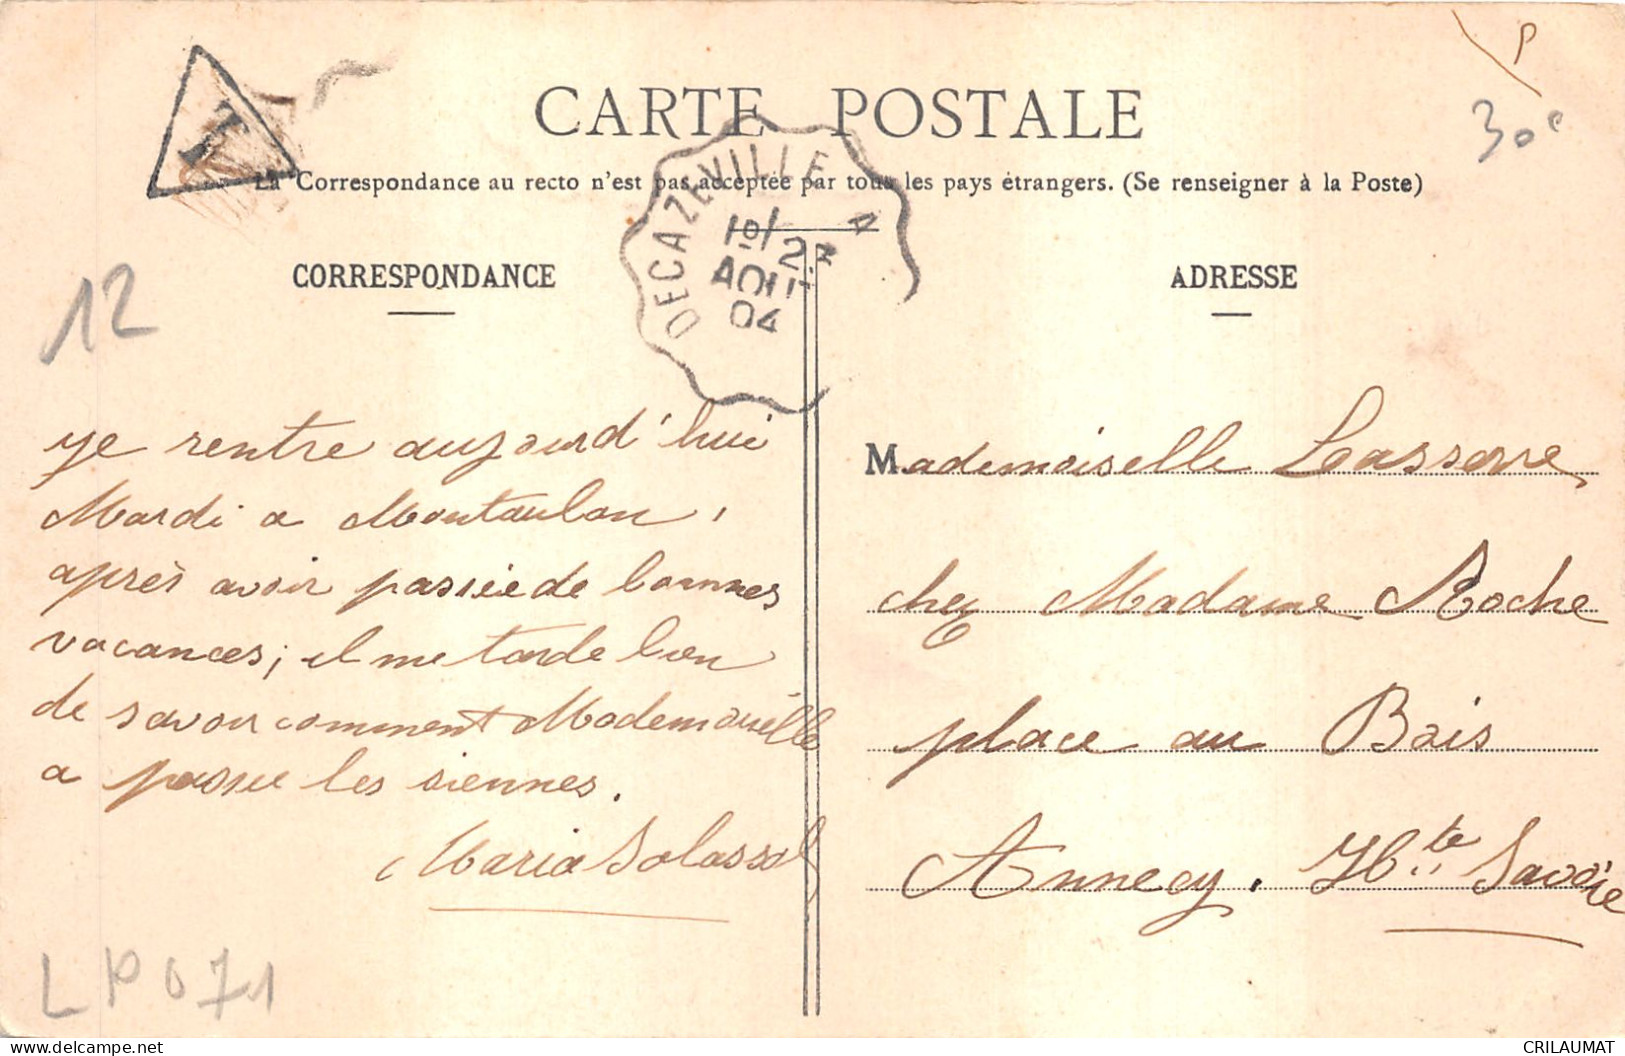 T
P
CARTE POSTALE
30c
La Correspondance au recto n'est pas acceptée par tous les pays étrangers. (Se renseigner à la Poste)
DECAZEVILLE A
10/23
AOUT
04
CORRESPONDANCE
12
ye rentre aujourd'hui
Mardi a Montauban,
après avoir passée de bonnes
vacances; il me tarde bien
de savoir comment Mademoiselle
a passer les siennes.
Maria Solassol
LP071
ADRESSE
Mademoiselle Lasserre
chez Madame Roche
place au Bois
Annecy. Hte Savoie
CRILAUMAT